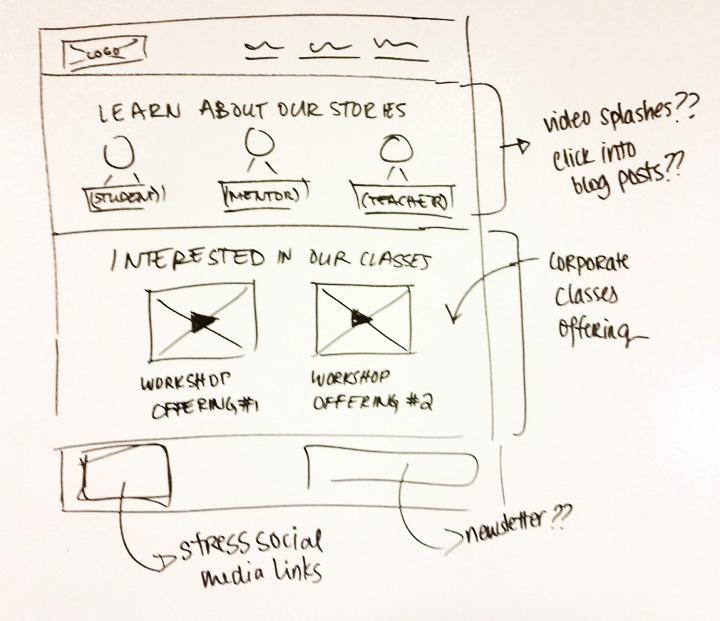 LOGO
LEARN ABOUT OUR STORIES
(STUDENT)
(MENTOR)
(TEACHER)
video splashes??
click into
blog posts??
INTERESTED IN OUR CLASSES
CORPORATE
classes
offering
WORKSHOP
OFFERING #1
WORKSHOP
OFFERING #2
stress social
media links
newsletter??